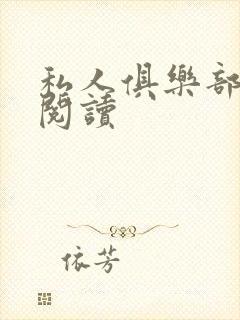 私人俱樂部
閱讀
依芳